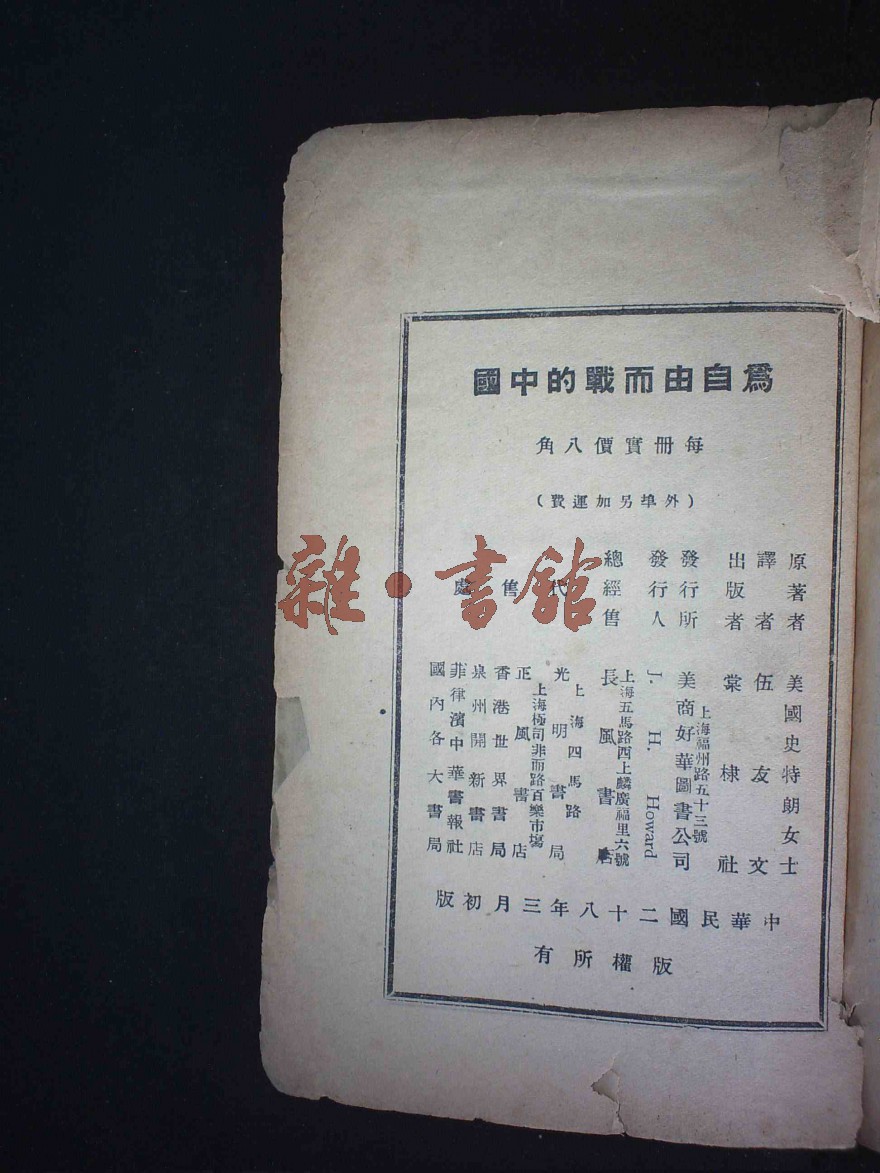 爲自由而戰的中國
每冊實價八角
（外埠另加運費）
原著者 美國史特朗女士
譯者 伍友文
出版者 棠棣社
發行所 美商好華圖書公司
上海福州路五十三號
發行人 J. H. Howard
總經售 長風書店
上海五馬路西上麟廣福里六號
代售處
光明書局
上海四馬路
正風書店
上海極司非而路百樂市塲
香港世界書局
泉州開新書店
菲律濱中華書報社
國內各大書局
中華民國二十八年三月初版
版權所有
雜·書館